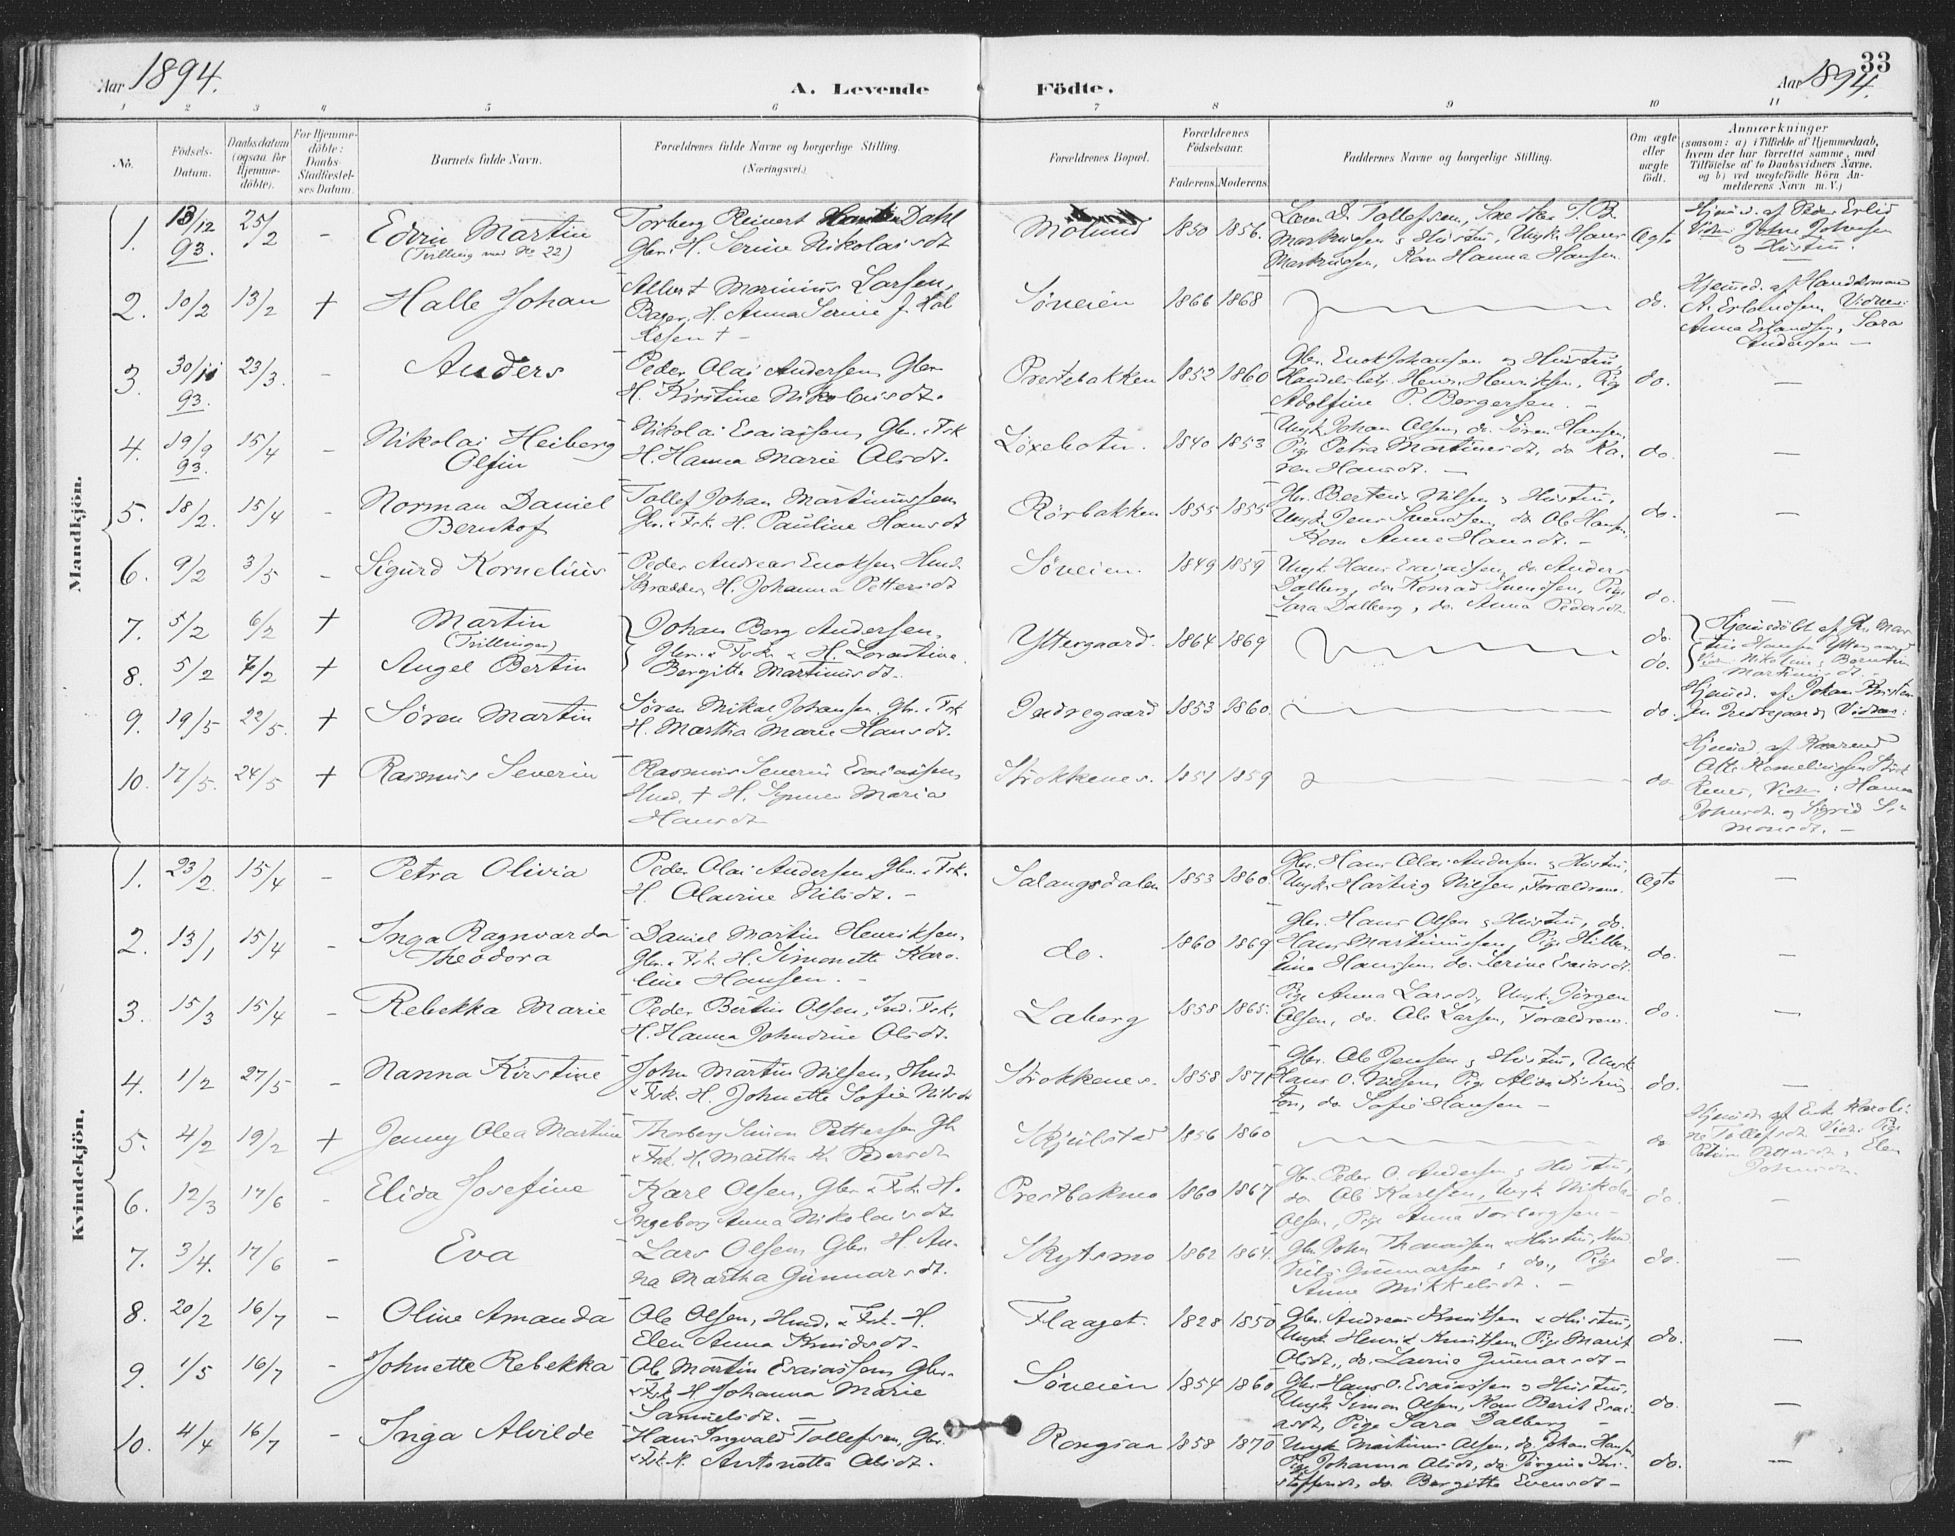 Aar 1894.
A. Levende Födte.
33
Aar 1894.
1 2 3 4 5 6 7 8 9 10 11
No.
Födsels-Datum.
Daabsdatum (ogsaa for Hjemmedöbte).
For Hjemmedöbte: Daabs-Stadfæstelses Datum.
Barnets fulde Navn.
Forældrenes fulde Navne og borgerlige Stilling.
(Næringsvei.)
Forældrenes Bopæl.
Forældrenes Födselsaar.
Faderens. Moderens.
Faddernes Navne og borgerlige Stilling.
Om ægte eller uægte födt.
Anmærkninger
(saasom: a) i Tilfælde af Hjemmedaab, hvem der har forrettet samme, med Tilföielse af to Daabsvidners Navne, og b) ved uægtefödte Börn Anmelderens Navn m. V.)
Mandkjön.
1. 13/12 93. 25/2 - Edvin Martin
(Tvilling med No 22)
Torberg Reinert Dahl
Gbr. H. Serine Nikolaisdt
Molund 1850 1856.
Markussen & Hustru, Ungk. Hans
Markussen, Kone Hanna Hansen.
Ægte
Hjemd. af Peder Erlid
& Hustru.
2. 10/2 13/2 + Halle Johan
Albert Marinius Larsen,
H. Anna Serine J.
Søveien 1866 1868 do.
Hjemmed. af Handelsmand
A. Erlandsen, Vidner:
Anna Erlandsen, Sara
Andersen -
3 30/11 93. 23/3. - Anders
Peder Olai Andersen, Gbr.
H. Kirstine Nikolaisdt.
Prestebakken 1852 1860
Gbr. Enok Johansen & Hustru,
Handelsbetj. Henr. Henriksen, Pige
Adolfine P. Borgersen. -
do. -
4. 19/9 93. 15/4 - Nikolai Heiberg
Olfin
Nikolai Esaiassen, Gbr. & Fsk
H. Hanna Marie Olsdt.
Løxebotn. 1840 1853
Ungk. Johan Olsen, do. Søren Hansen,
Pige Petra Martinusdt, do. Ka-
ren Hansdt. -
do. -
5. 18/2. 15/4 - Norman Daniel
Bernhof
Tollef Johan Martinussen,
Gbr. & Fsk. H. Pauline Hansdt
Rørbakken 1855 1855
Gbr. Berteus Nilsen & Hustru,
Ungk. Jens Svendsen, do Ole Hansen,
Kone Anne Hansdt. -
do. -
6. 9/2 3/5 - Sigurd Kornelius
Peder Andreas Enoksen Hmd.
H. Johanna Pettersdt
Søveien. 1849 1859
Ungk. Hans Esaiassen, do. Anders
Dalberg, do. Konrad Svendsen, Pige
Sara Dalberg, do. Anna Pedersdt.
do. -
7. 5/2 6/2 + Martin
(Tvillinger)
8. 5/2 7/2 + Angel Bertin
Johan Berg Andersen,
Gbr. & Fsk. & H. Lorentine
Bergitte Martinusdt.
Yttergaard. 1864 1869 do.
do.
Hjemmedöbt af
Martinusdt. -
9. 19/5 22/5. + Søren Martin
Søren Mikal Johansen, Gbr. & Fsk
H. Martha Marie Hansdt.
Indregaard 1853 1860. do.
Hjemmed. af Johan Kristen-
sen Indregaard, Vidner:
10. 17/5. 24/5 + Rasmus Severin
Rasmus Severin Esaiassen,
Hmd. + H. Synner Maria
Hansdt
Strokkenes. 1851 1859 do
Vidn: Hanna
Johnsdt. og Sigrid Si-
monsdt. -
Kvindekjön.
1. 23/2. 15/4 - Petra Olivia
Peder Olai Andersen, Gbr. & Fsk.
H. Olavine Nilsdt. -
Salangsdalen 1853 1860.
Gbr. Hans Olai Andersen & Hustru,
Ungk. Hartvig Nilsen, Forældrene.
Ægte -
2. 13/1 15/4 - Inga Ragnvarda
Theodora
Daniel Martin Henriksen,
Gbr. & Fsk. H. Simonette Karo-
line Hansen. -
do. 1860 1869
Gbr. Hans Olsen & Hustru, do.
Hans Markussen, Pige
Hansen, do. Serine Esaiasdt.
do. -
3. 15/3 15/4 - Rebekka Marie
Peder Bertin Olsen, Ind. Fsk.
H. Hanna Johndine Olsdt.
Laberg 1858 1865.
Pige Anna Larsdt, Ungk. Jørgen
Olsen, do. Ole Larsen, Forældrene.
do. -
4. 1/2 27/5 - Nanna Kirstine
John Martin Nilsen, Hmd.
& Fsk. H. Johnette Sofie Nilsdt
Strokkenes. 1858 1871
Gbr. Ole Jensen & Hustru, Ungk
Hans O. Nilsen, Pige
do Sofie Hansen -
do. -
5. 4/2 19/2 + Jenny Olea Martine
Thorberg Simon Pettersen Gbr
& Fsk. H. Martha K. Pedersdt
Skjulstad 1856 1860 do
Hjemmed. af Enke Karoli-
ne Tollefsdt. Vidn: Pige
Pettersdt, Elen
Johnsdt.
6. 12/3 17/6 - Elida Josefine
Karl Olsen, Gbr. & Fsk. H.
Ingeborg Anna Nikolaisdt.
Prestbakmo 1860 1867
Gbr. Peder O. Andersen & Hustru,
do. Ole Karlsen, Ungk. Nikolai
Olsen, Pige Anna Torbergsen -
do. -
7. 3/4. 17/6 - Eva
Lars Olsen, Gbr. H. An-
na Martha Gunnarsdt.
Skytsmo 1862 1864.
Gbr. John Thomassen & Hustru,
Nils Gunnarsen & do., Pige
Anne Mikkelsdt. -
do. -
8. 20/2 16/7 - Oline Amanda
Ole Olsen, Hmd. & Fsk. H.
Elen Anna Knudsdt.
Flaaget. 1828 1850
Gbr. Andreas Knutsen & Hustru,
Ungk. Henrik Knutsen, Pige Marit
Olsdt., do. Lavine Gunnarsdt -
do. -
9. 1/5 16/7 - Johnette Rebekka
Ole Martin Esaiassen, Gbr.
& Fsk. H. Johanna Marie
Samuelsdt. -
Søveien 1854 1860
Gbr. Hans O. Esaiassen & Hustru,
Ungk. Simon Olsen, Kone Berit Esai-
asdt, Pige Sara Dalberg -
do. -
10. 4/4 16/7 - Inga Alvilde
Hans Ingvald Tollefsen, Gbr.
& Fsk. H. Antonette Olsdt.
Rongsaa 1858 1870
Ungk. Martinus Olsen, do. Johan Hansen,
Pige Johanna Olsdt, do. Jørgine Kri-
stoffersdt, do. Bergitte Evensdt -
do. -